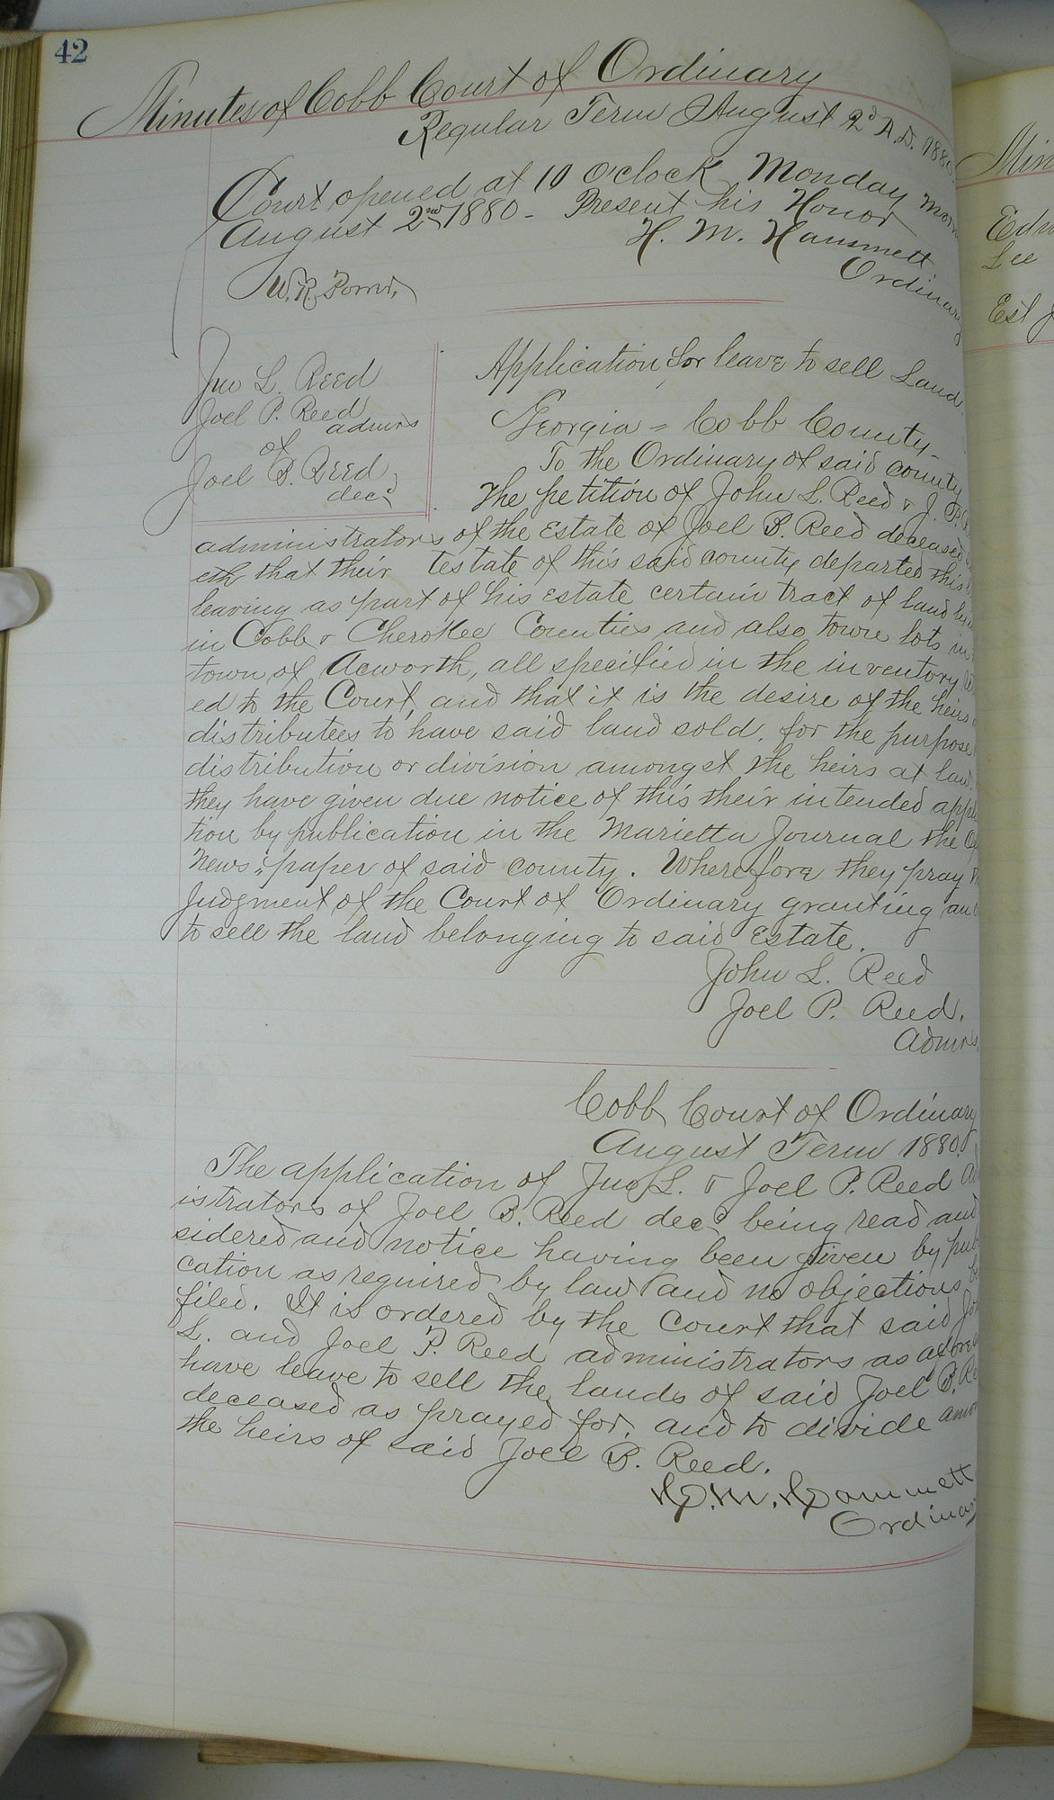 42
Minutes of Cobb Court of Ordinary
Regular Term August 2d A.D. 1880
Court opened at 10 O'clock Monday morn
August 2nd 1880 - Present his Honor
H. M. Hammett
Ordinary
W.R.
Jno L. Reed
Joel P. Reed
admrs
of
Joel B. Reed
decd
Application for leave to sell Land.
Georgia = Cobb County
To the Ordinary of said county
The petition of John L. Reed & J. P.
administrators of the Estate of Joel B. Reed deceased
eth that their testate of this said county departed this
leaving as part of his Estate certain tract of land
in Cobb & Cherokee Counties and also town lots in
town of Acworth, all specified in the inventory
ed to the Court, and that it is the desire of the heirs
distributees to have said land sold. for the purpose
distribution or division amongst the heirs at law.
they have given due notice of this their intended appli
tion by publication in the Marietta Journal the
News=paper of said county. Wherefore they pray
Judgment of the Court of Ordinary granting
to sell the land belonging to said Estate.
John L. Reed
Joel P. Reed.
Admrs
Cobb Court of Ordinary
August Term 1880.
The application of Jno L. & Joel P. Reed Ad
istrators of Joel B. Reed decd being read and
sidered and notice having been given by pub
cation as required by law and no objections
filed. It is ordered by the Court that said
L. and Joel P. Reed administrators as afore
have leave to sell the lands of said Joel B. Re
deceased as prayed for, and to divide amon
the heirs of said Joel B. Reed.
H. M. Hammett
Ordinary
Min
Lee
Est